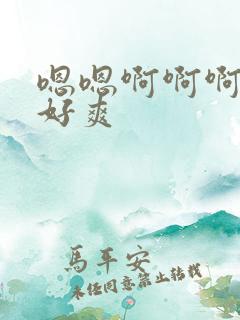 嗯嗯啊啊啊
好爽
馬平安
未经同意禁止转载